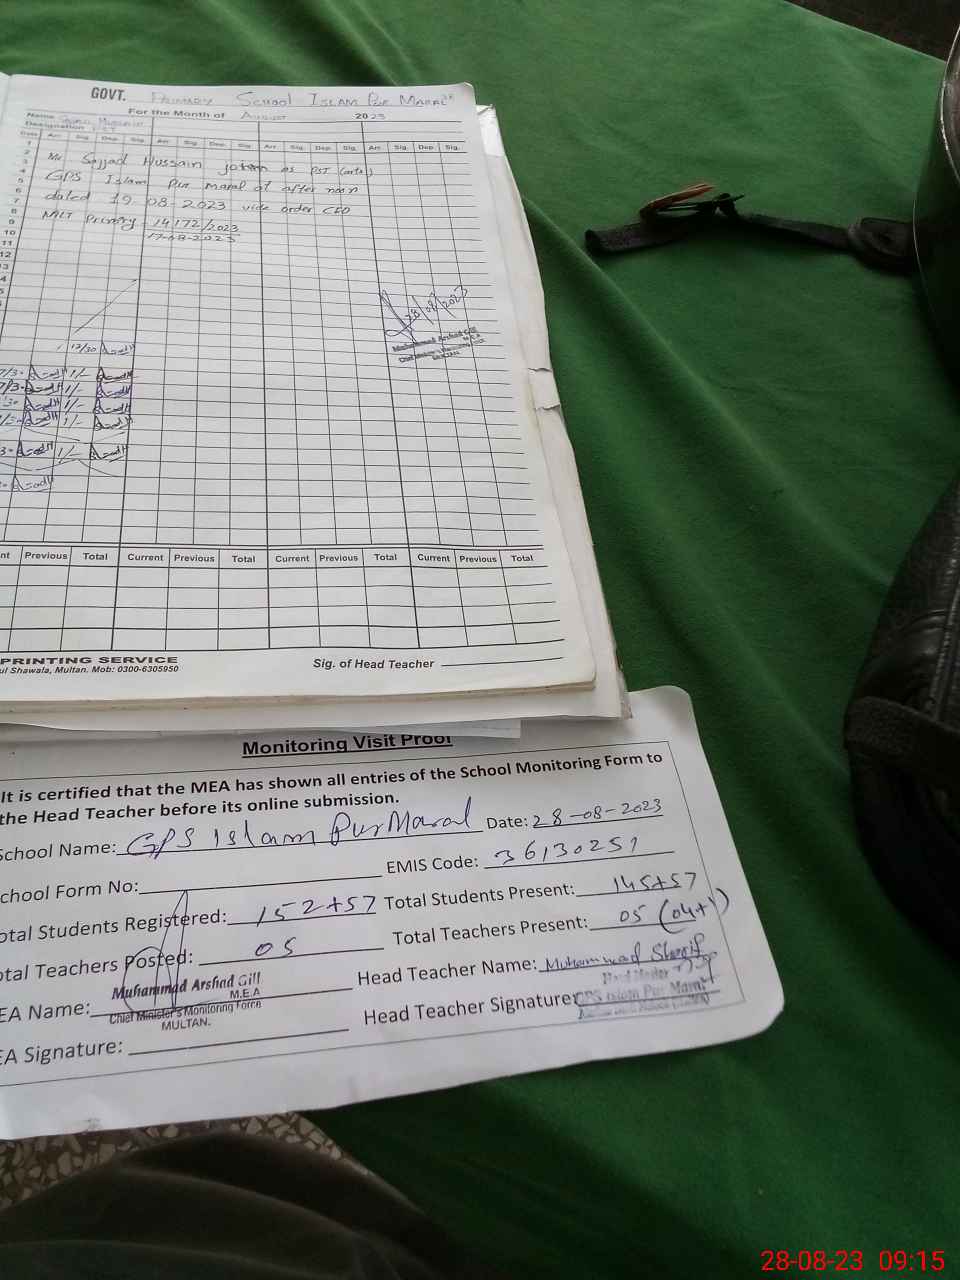 GOVT. PRIMARY SCHOOL ISLAM PUR MARAL
For the Month of AUGUST 2023
Name Sajjad Hussain
Designation PST
Date Arr. Sig. Dep. Sig. Arr. Sig. Dep. Sig. Arr. Sig. Dep. Sig. Arr. Sig. Dep. Sig.
1
2
3
4
5
6
7
8
9
10
11
12
13
Mr Sajjad Hussain join as PST (arts)
GPS Islam Pur maral at after noon
dated 19-08-2023 vide order CEO
MLT Primary - 14172/2023
17-08-2023
28/08/2023
Muhammad Arshad Gill
M.E.A
Chief Minister's Monitoring Force
MULTAN.
12/30
1/-
1/-
1/-
1/-
1/-
Previous Total Current Previous Total Current Previous Total Current Previous Total
PRINTING SERVICE
Shawala, Multan. Mob: 0300-6305950
Sig. of Head Teacher
Monitoring Visit Proof
It is certified that the MEA has shown all entries of the School Monitoring Form to
the Head Teacher before its online submission.
School Name: GPS Islam Pur Maral Date: 28-08-2023
School Form No: EMIS Code: 36130251
Total Students Registered: 152+57 Total Students Present: 145+57
Total Teachers Posted: 05 Total Teachers Present: 05 (04+1)
MEA Name: Muhammad Arshad Gill Head Teacher Name: Muhammad Sharif
M.E.A
Chief Minister's Monitoring Force
MULTAN.
MEA Signature: Head Teacher Signature:
Head Master
GPS Islam Pur Maral
28-08-23 09:15